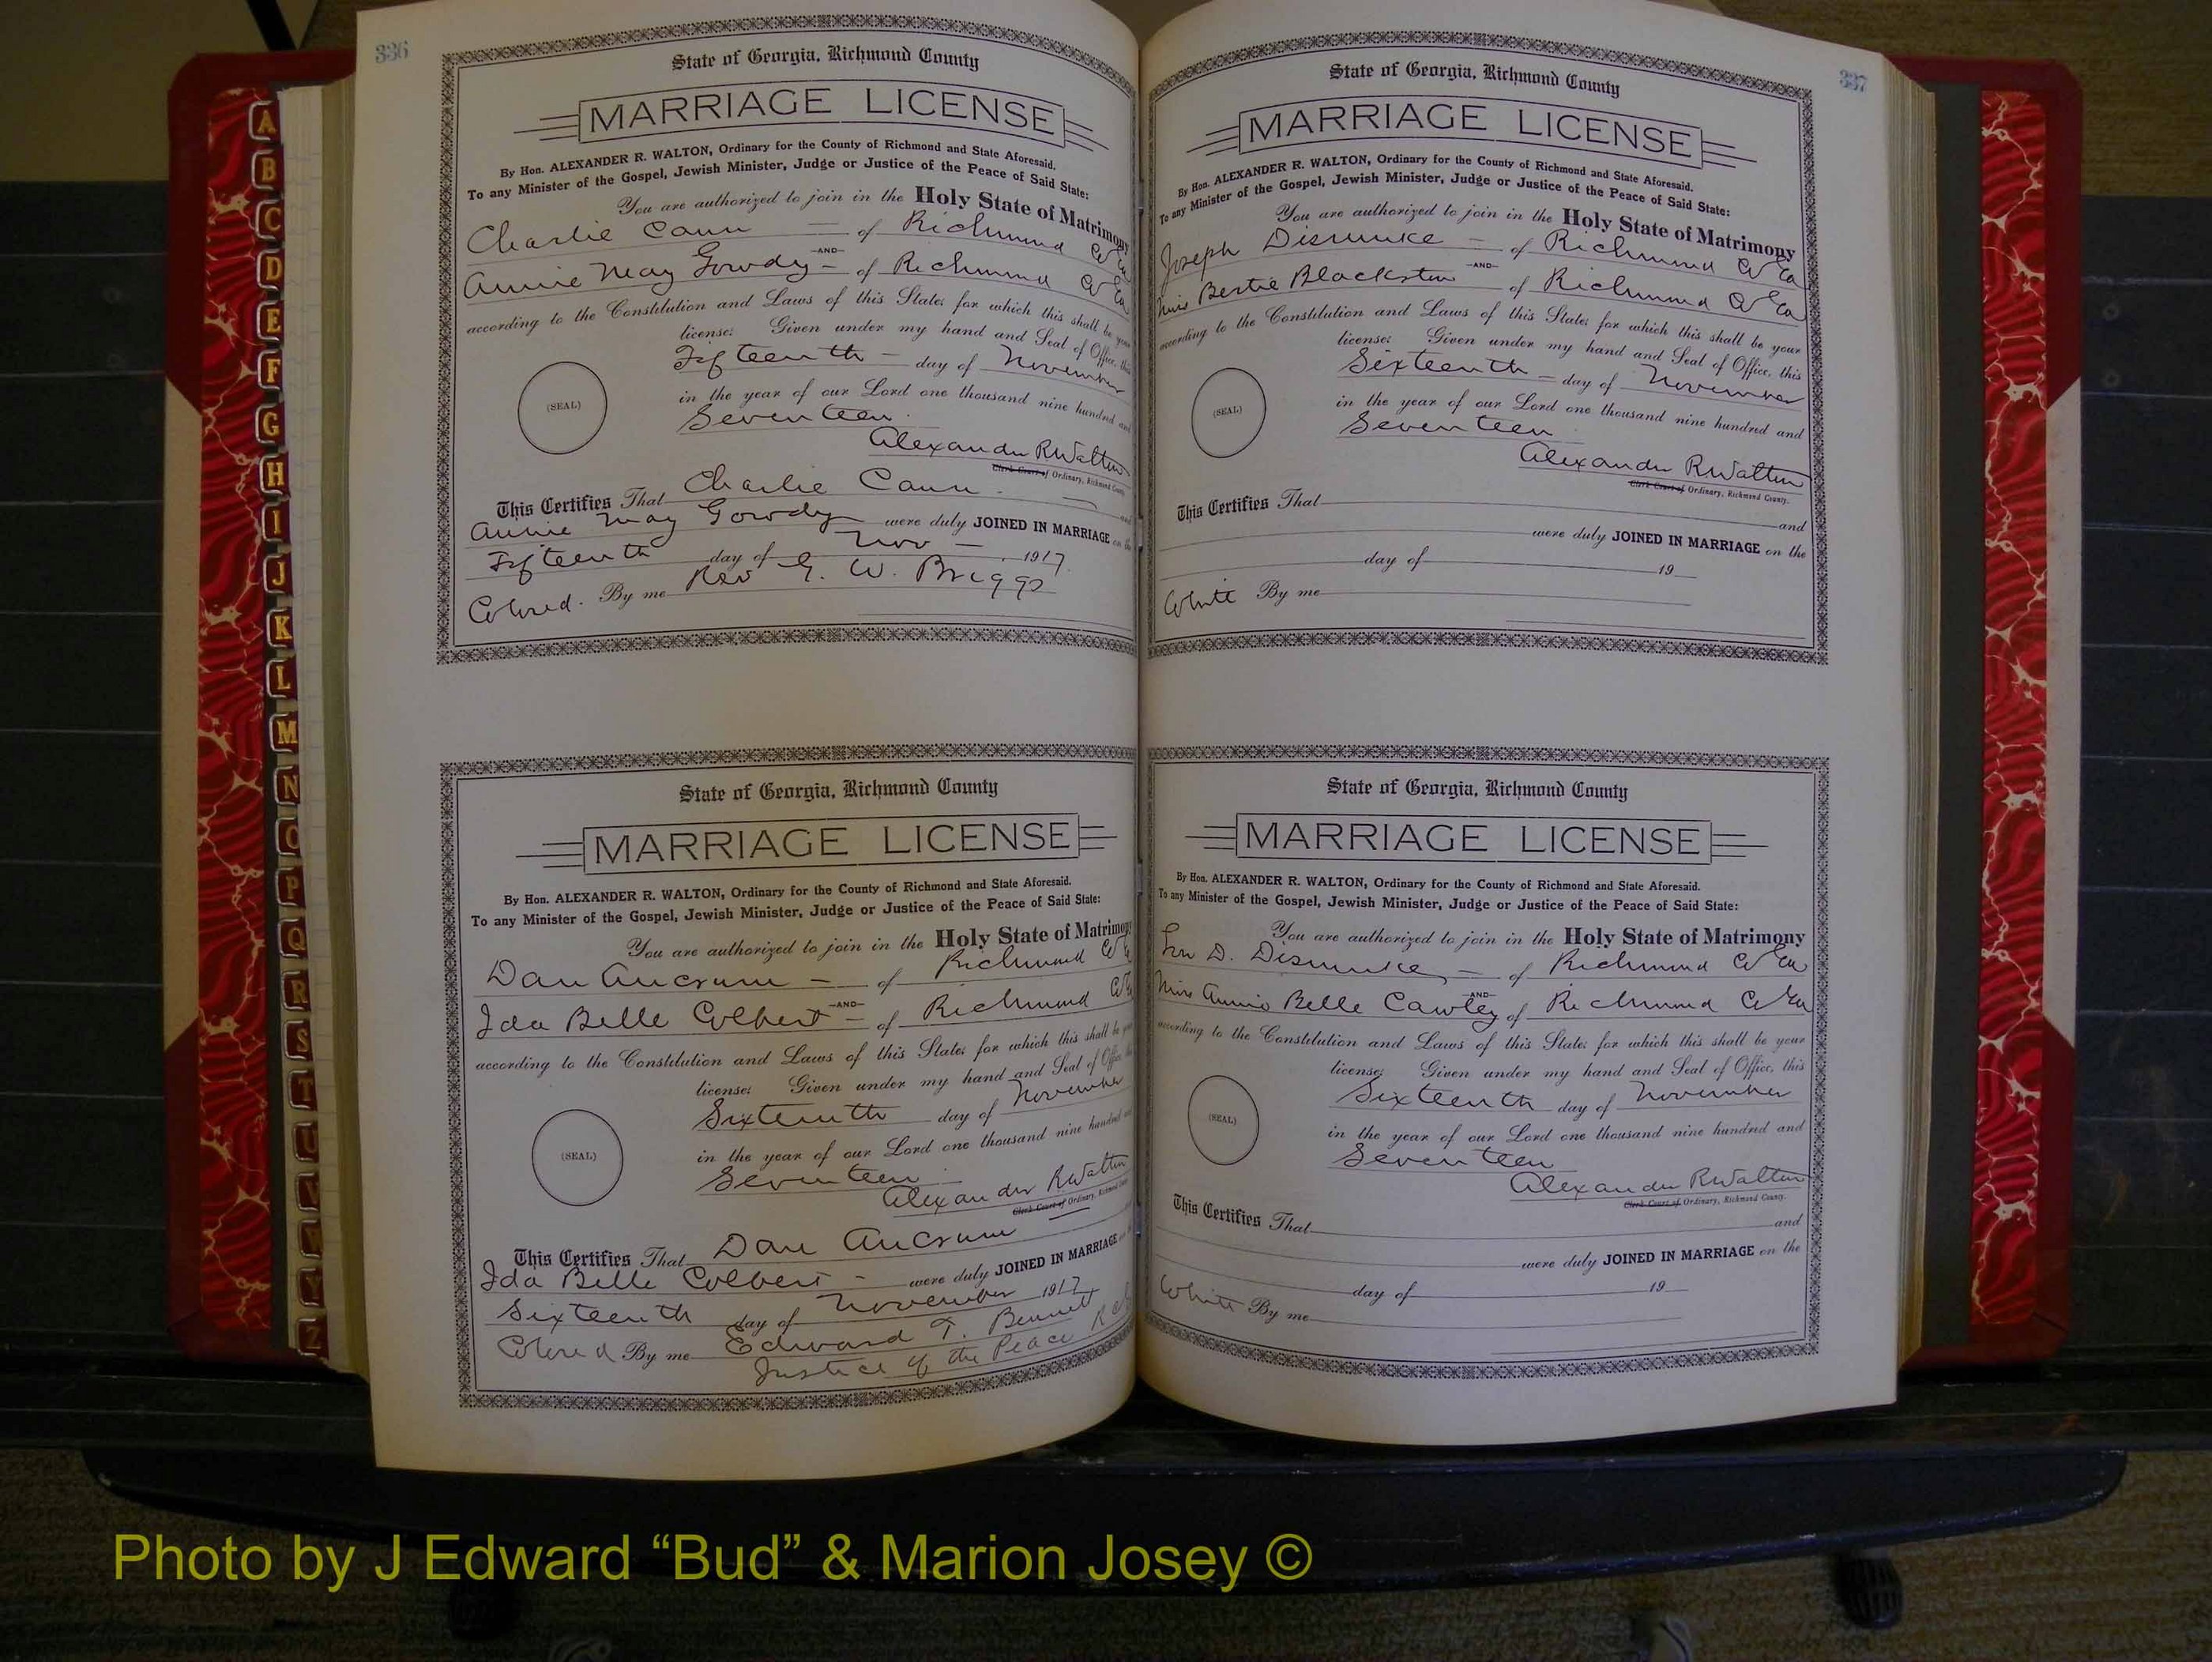 336
State of Georgia, Richmond County
MARRIAGE LICENSE
By Hon. ALEXANDER R. WALTON, Ordinary for the County of Richmond and State Aforesaid.
To any Minister of the Gospel, Jewish Minister, Judge or Justice of the Peace of Said State:
You are authorized to join in the Holy State of Matrimony
Charlie Cann — of Richmond Co Ga
—AND—
Annie May Gowdy — of Richmond Co Ga
according to the Constitution and Laws of this State; for which this shall be your
license: Given under my hand and Seal of Office, this
Fifteenth — day of November
(SEAL)
in the year of our Lord one thousand nine hundred and
Seventeen.
Alexander R Walton
Clerk Court of Ordinary, Richmond County
This Certifies That Charlie Cann — and
Annie May Gowdy were duly JOINED IN MARRIAGE on the
Fifteenth day of Nov — 1917.
Colored. By me Rev G. W. Briggs
State of Georgia, Richmond County
MARRIAGE LICENSE
By Hon. ALEXANDER R. WALTON, Ordinary for the County of Richmond and State Aforesaid.
To any Minister of the Gospel, Jewish Minister, Judge or Justice of the Peace of Said State:
You are authorized to join in the Holy State of Matrimony
Dan Ancrum — of Richmond Co
—AND—
Ida Belle Colbert — of Richmond Co
according to the Constitution and Laws of this State; for which this shall be
license: Given under my hand and Seal of Office
Sixteenth day of November
(SEAL)
in the year of our Lord one thousand nine hundred
Seventeen
Alexander R Walton
Clerk Court of Ordinary, Richmond
This Certifies That Dan Ancrum
Ida Belle Colbert — were duly JOINED IN MARRIAGE
Sixteenth day of November 1917
Colored By me Edward T. Bennett
Justice of the Peace
337
State of Georgia, Richmond County
MARRIAGE LICENSE
By Hon. ALEXANDER R. WALTON, Ordinary for the County of Richmond and State Aforesaid.
To any Minister of the Gospel, Jewish Minister, Judge or Justice of the Peace of Said State:
You are authorized to join in the Holy State of Matrimony
Joseph Dismuke — of Richmond Co Ga
—AND—
Miss Bertie Blackston of Richmond Co Ga
according to the Constitution and Laws of this State; for which this shall be your
license: Given under my hand and Seal of Office, this
Sixteenth — day of November
(SEAL)
in the year of our Lord one thousand nine hundred and
Seventeen
Alexander R Walton
Clerk Court of Ordinary, Richmond County.
This Certifies That and
were duly JOINED IN MARRIAGE on the
day of 19
White By me
State of Georgia, Richmond County
MARRIAGE LICENSE
By Hon. ALEXANDER R. WALTON, Ordinary for the County of Richmond and State Aforesaid.
To any Minister of the Gospel, Jewish Minister, Judge or Justice of the Peace of Said State:
You are authorized to join in the Holy State of Matrimony
D. Dismuke — of Richmond Co Ga
—AND—
Miss Annie Belle Cawley of Richmond Co Ga
according to the Constitution and Laws of this State; for which this shall be your
license: Given under my hand and Seal of Office, this
Sixteenth day of November
(SEAL)
in the year of our Lord one thousand nine hundred and
Seventeen
Alexander R Walton
Clerk Court of Ordinary, Richmond County.
This Certifies That and
were duly JOINED IN MARRIAGE on the
day of 19
White By me
A
B
C
D
E
F
G
H
I
J
K
L
M
N
O
P
Q
R
S
T
U
V
Y
Z
Photo by J Edward “Bud” & Marion Josey ©